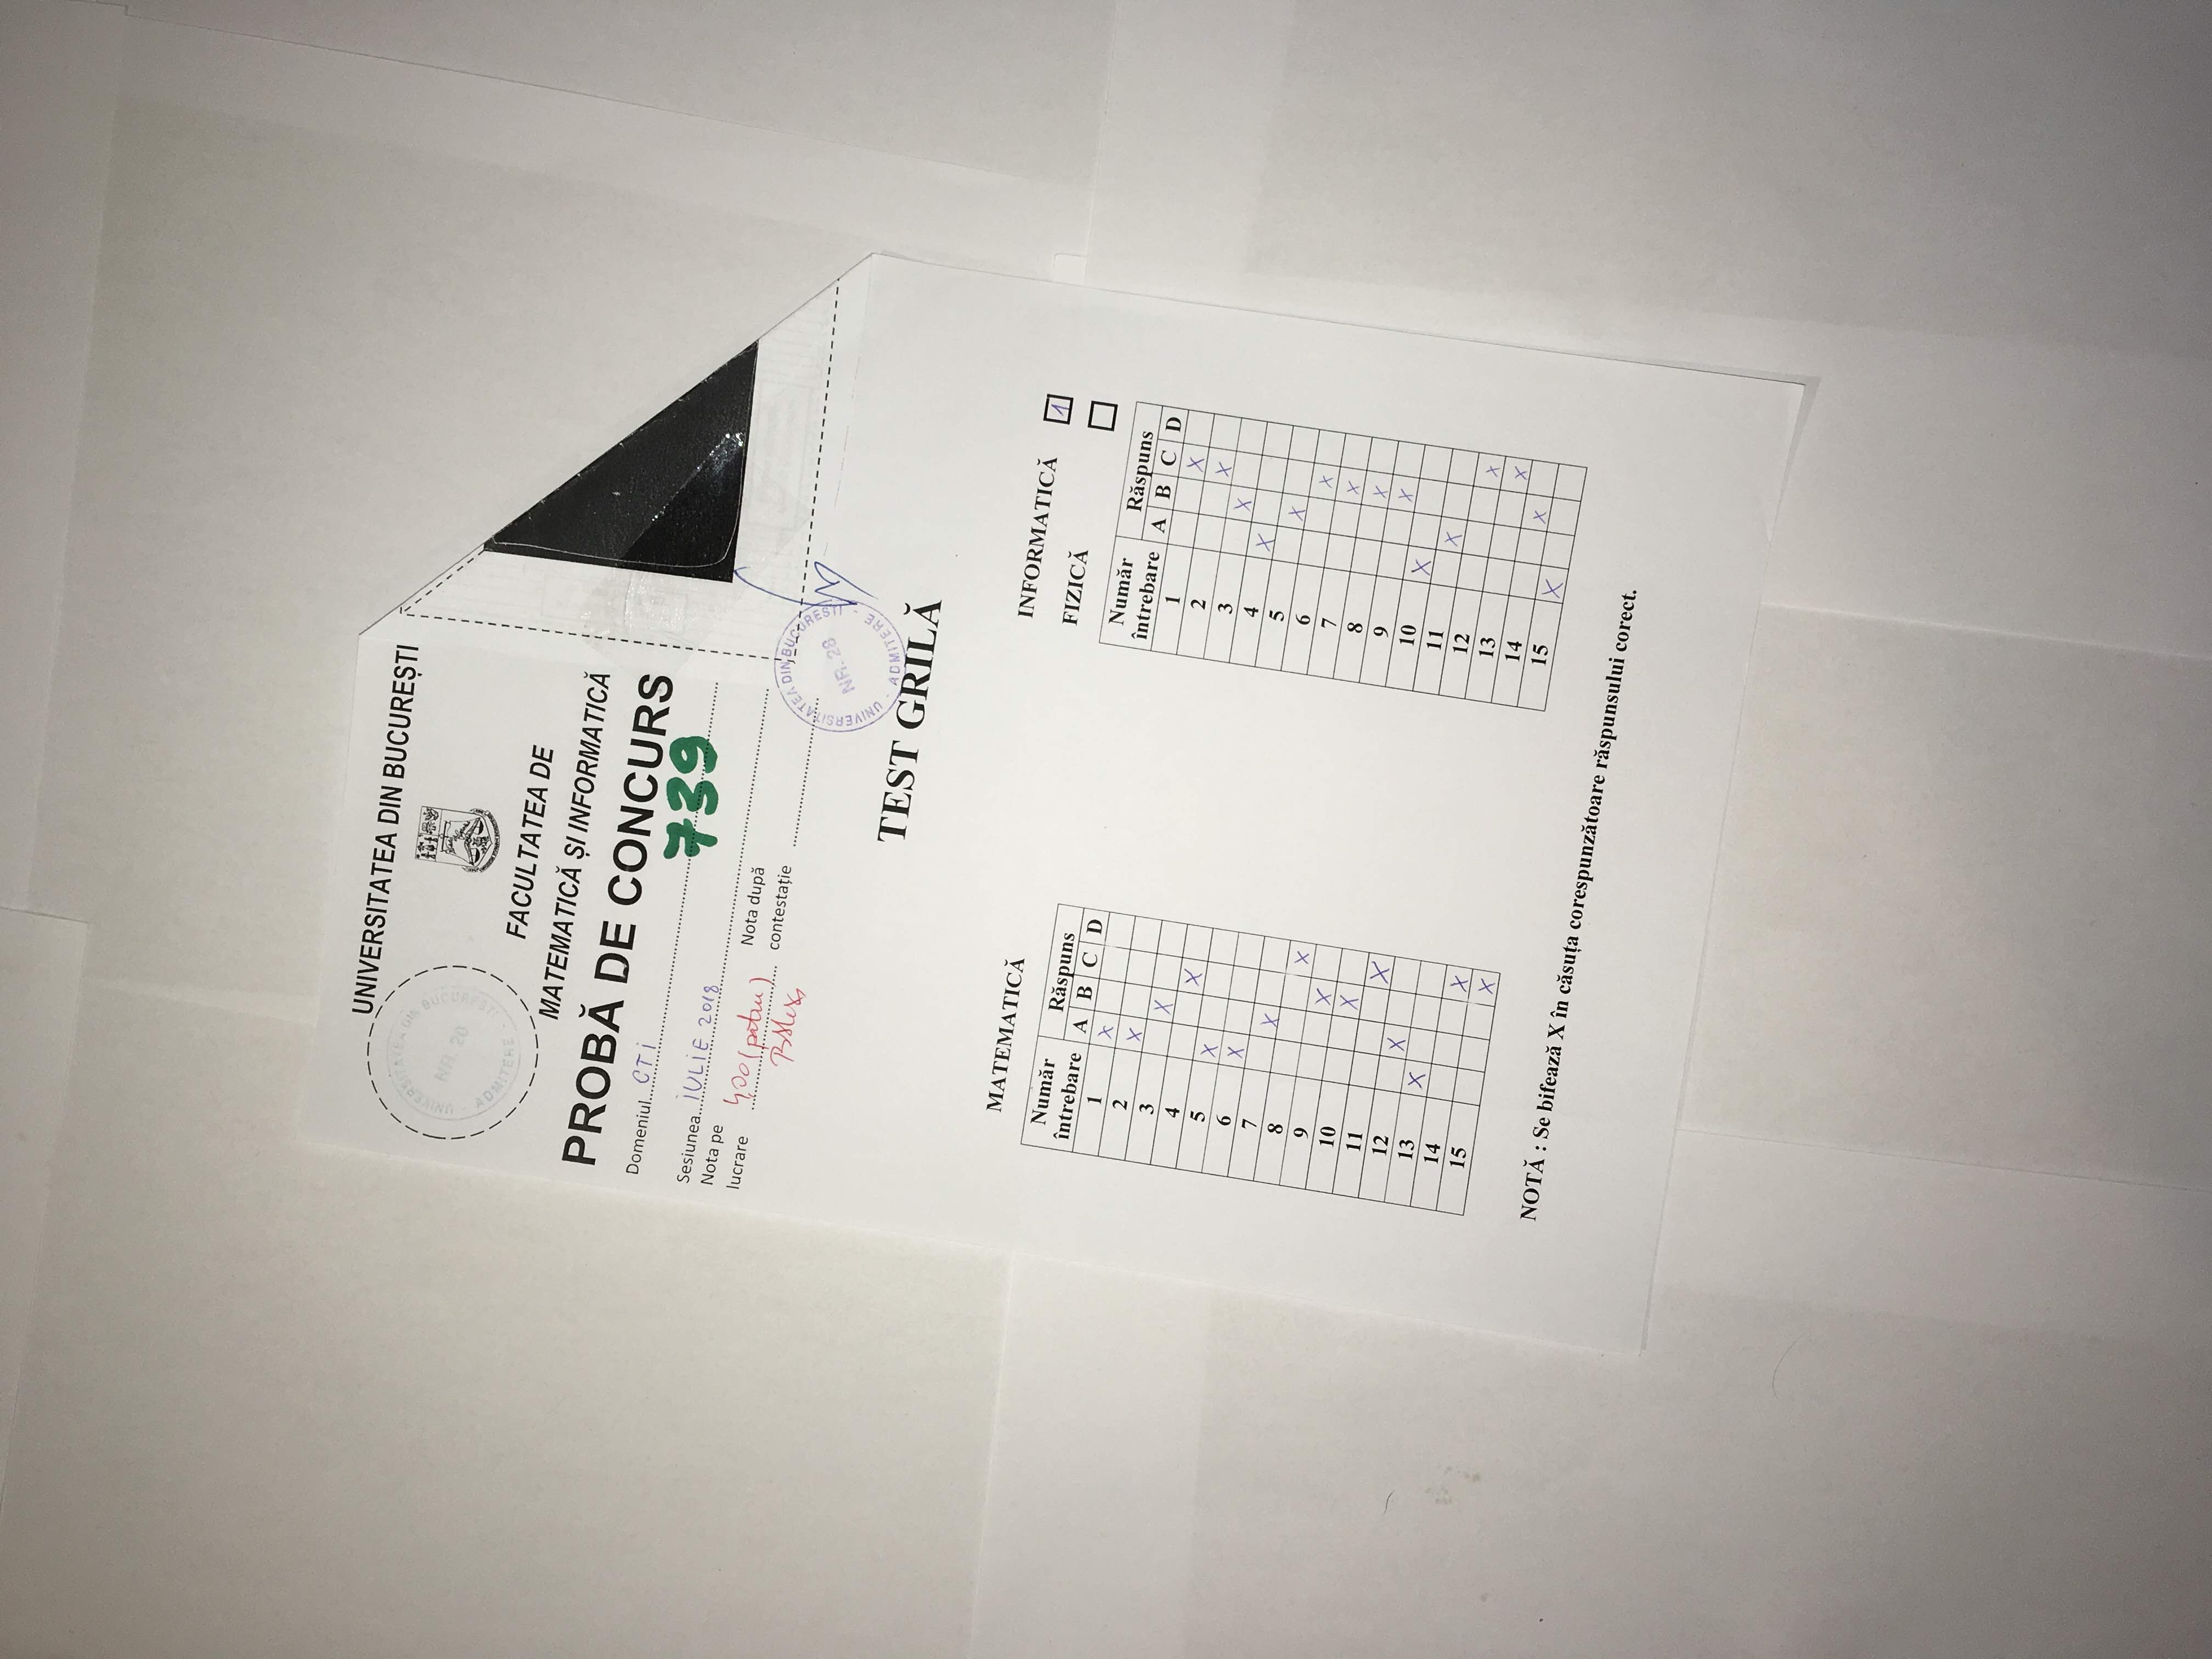 UNIVERSITATEA DIN BUCUREȘTI
UNIVERSITATEA DIN BUCUREȘTI - ADMITERE -
NR. 20
FACULTATEA DE
MATEMATICĂ ȘI INFORMATICĂ
PROBĂ DE CONCURS
Domeniul CTI
739
Sesiunea IULIE 2018
Nota pe lucrare 4,00 (patru)
Nota după contestație
UNIVERSITATEA DIN BUCUREȘTI - ADMITERE -
NR. 28
TEST GRILĂ
MATEMATICĂ
Număr întrebare Răspuns
A B C D
1 X
2 X
3 X
4 X
5 X
6 X
7 X
8 X
9 X
10 X
11 X
12 X
13 X
14 X
15 X
INFORMATICĂ 1
FIZICĂ
Număr întrebare Răspuns
A B C D
1 X
2 X
3 X
4 X
5 X
6 X
7 X
8 X
9 X
10 X
11 X
12 X
13 X
14 X
15 X
NOTĂ : Se bifează X în căsuța corespunzătoare răspunsului corect.